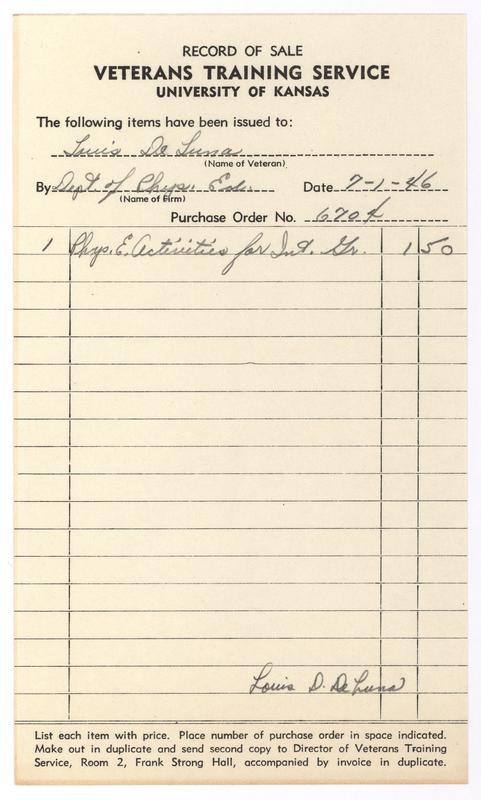 RECORD OF SALE
VETERANS TRAINING SERVICE
UNIVERSITY OF KANSAS
The following items have been issued to:
Louis De Luna
(Name of Veteran)
By Dept of Phys. Ed. Date 7-1-46
(Name of Firm)
Purchase Order No. 670
1 Phys. E. Activities for Int. Gr. 1 50
Louis D. De Luna
List each item with price. Place number of purchase order in space indicated.
Make out in duplicate and send second copy to Director of Veterans Training
Service, Room 2, Frank Strong Hall, accompanied by invoice in duplicate.